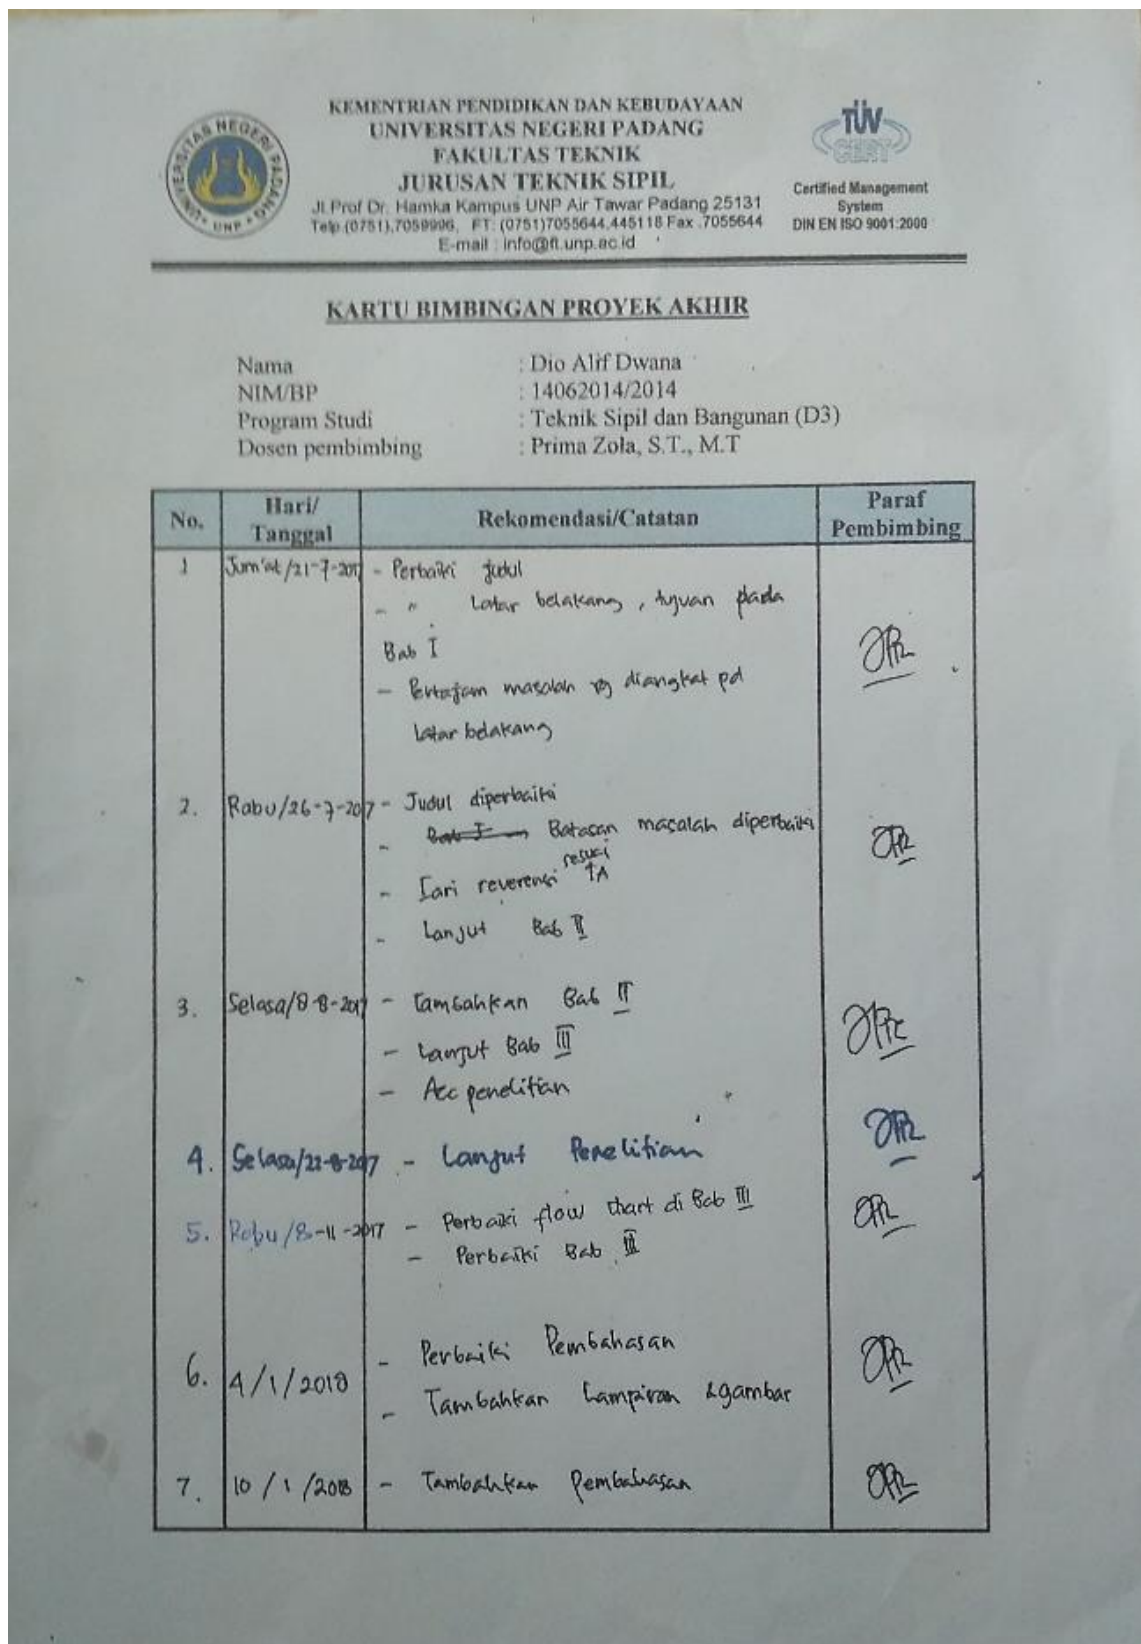 KEMENTRIAN PENDIDIKAN DAN KEBUDAYAAN
UNIVERSITAS NEGERI PADANG
FAKULTAS TEKNIK
JURUSAN TEKNIK SIPIL
Jl.Prof Dr. Hamka Kampus UNP Air Tawar Padang 25131
Telp.(0751),7059996, FT: (0751)7055644,445118 Fax .7055644
E-mail : info@ft.unp.ac.id
UNIVERSITAS NEGERI PADANG
UNP
TÜV
CERT
Certified Management
System
DIN EN ISO 9001:2000
KARTU BIMBINGAN PROYEK AKHIR
Nama : Dio Alif Dwana
NIM/BP : 14062014/2014
Program Studi : Teknik Sipil dan Bangunan (D3)
Dosen pembimbing : Prima Zola, S.T., M.T
No. Hari/ Tanggal Rekomendasi/Catatan Paraf Pembimbing
1 Jum'at/21-7-2017 - Perbaiki judul
- " Latar belakang, tujuan pada
Bab I
- Pertajam masalah yg diangkat pd
latar belakang
2. Rabu/26-7-2017 - Judul diperbaiki
- Batasan masalah diperbaiki
- Cari reverensi sesuai TA
- Lanjut Bab II
3. Selasa/8-8-2017 - Tambahkan Bab II
- Lanjut Bab III
- Acc penelitian
4. Selasa/22-8-2017 - Lanjut Penelitian
5. Rabu/8-11-2017 - Perbaiki flow chart di Bab III
- Perbaiki Bab III
6. 4/1/2018 - Perbaiki Pembahasan
- Tambahkan Lampiran &gambar
7. 10/1/2018 - Tambahkan Pembahasan